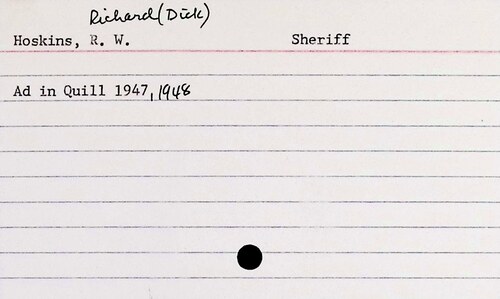 Richard (Dick)
Hoskins, R. W. Sheriff
Ad in Quill 1947, 1948